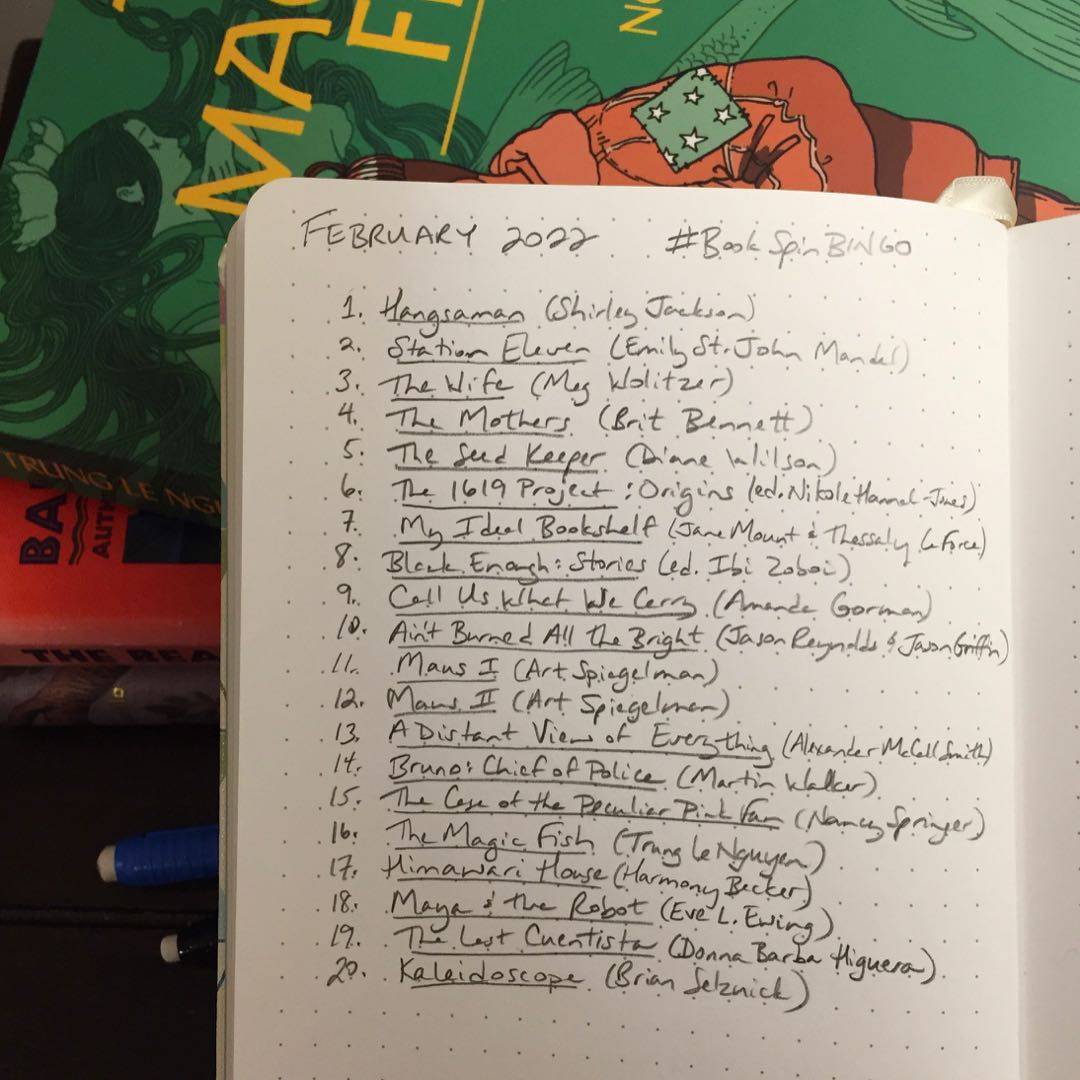 MAG
FI
NG
TRUNG LE NGU
BA
AUTH
THE REA
FEBRUARY 2022 #BookSpinBINGO
1. Hangsaman (Shirley Jackson)
2. Station Eleven (Emily St. John Mandel)
3. The Wife (Meg Wolitzer)
4. The Mothers (Brit Bennett)
5. The Seed Keeper (Diane Wilson)
6. The 1619 Project: Origins (ed. Nikole Hannah-Jones)
7. My Ideal Bookshelf (Jane Mount & Thessaly LeForce)
8. Black Enough: Stories (ed. Ibi Zoboi)
9. Call Us What We Carry (Amanda Gorman)
10. Ain't Burned All the Bright (Jason Reynolds & Jason Griffin)
11. Maus I (Art Spiegelman)
12. Maus II (Art Spiegelman)
13. A Distant View of Everything (Alexander McCall Smith)
14. Bruno: Chief of Police (Martin Walker)
15. The Case of the Peculiar Pink Fan (Nancy Springer)
16. The Magic Fish (Trung Le Nguyen)
17. Himawari House (Harmony Becker)
18. Maya & the Robot (Eve L. Ewing)
19. The Last Cuentista (Donna Barba Higuera)
20. Kaleidoscope (Brian Selznick)